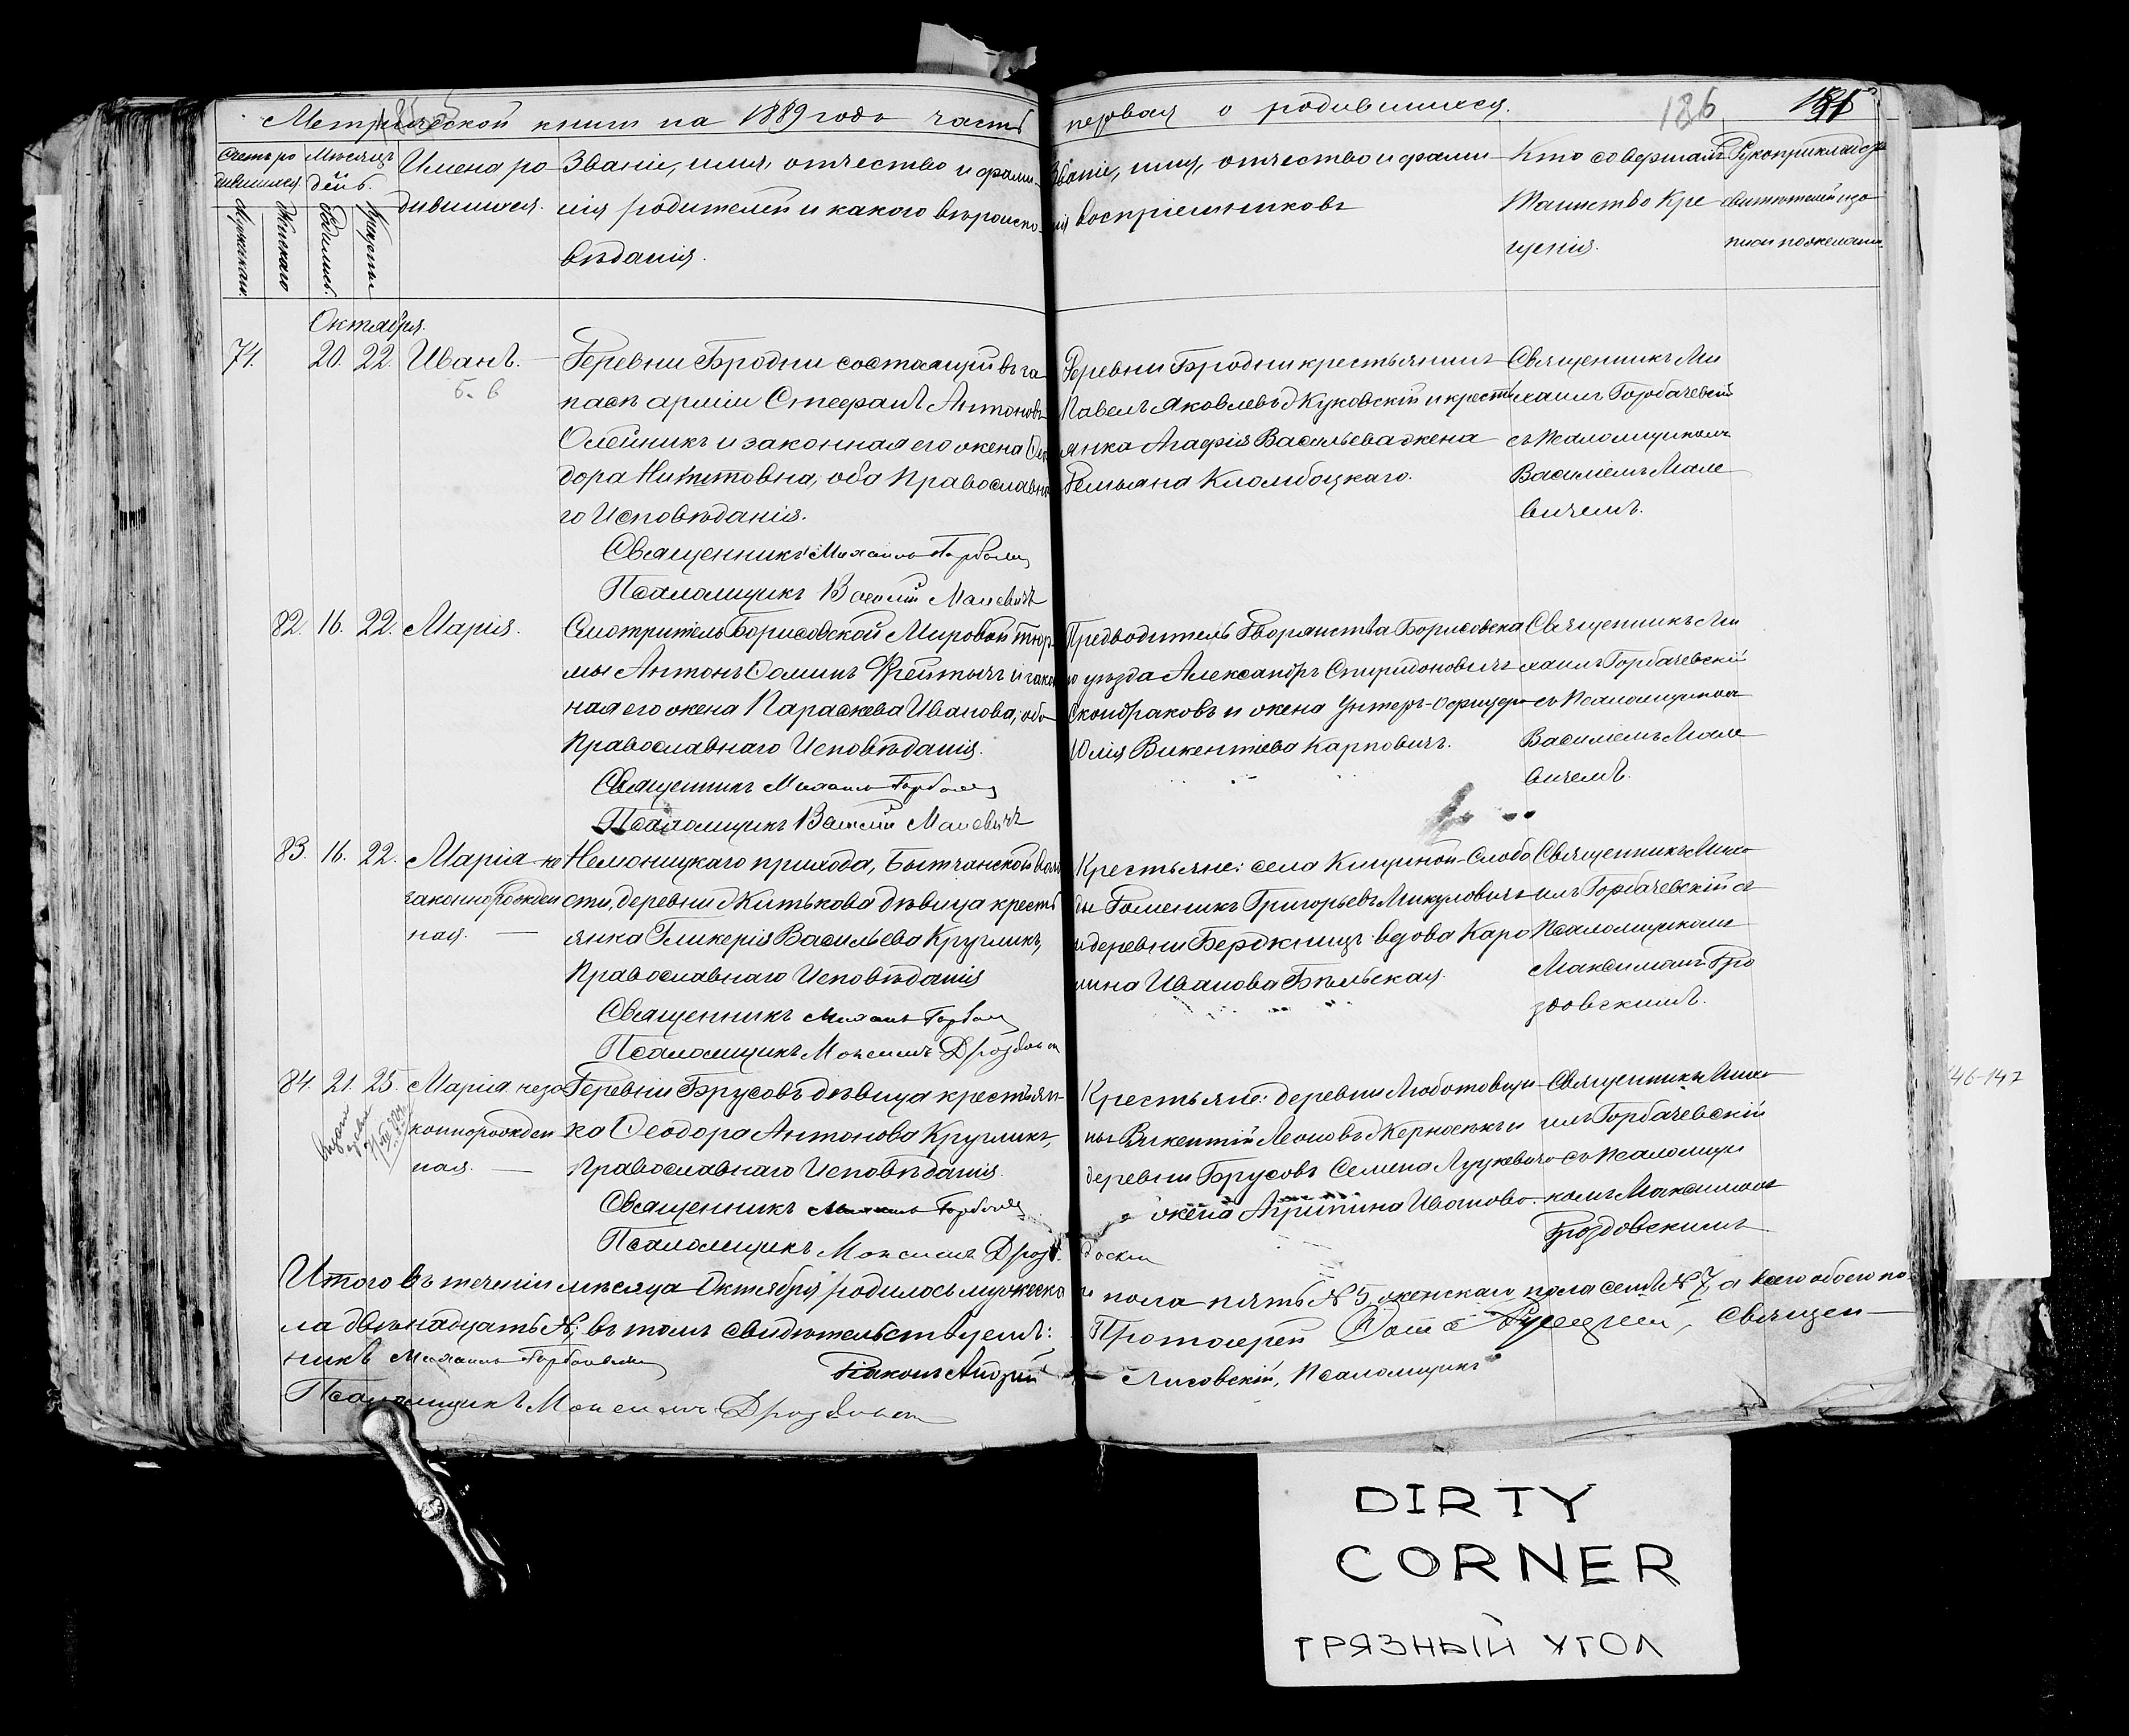 Метрической книги на 1889 годъ часть первая о родившихся. 186
Счетъ ро
дившихся.
Мѣсяцъ
день.
Мужскаго.
Женскаго
Родились.
Крещены
Имена ро-
дившихся.
Званіе, имя, отчество и фами-
лія родителей и какого вѣроиспо-
вѣданія.
Званіе, имя, отчество и фами-
лія воспріемниковъ
Кто совершалъ
Таинство Кре
щенія.
Рукоприкладство
свидѣтелей о за
писи по желанію.
Октября.
74. 20. 22. Иванъ.
Деревни Бродни состоящій въ за
пасѣ арміи Стефанъ Антоновъ
Олейникъ и законная его жена Ѳео
дора Никитовна, оба Православна
го Исповѣданія.
Священникъ Михаилъ Горбачев
Псаломщикъ Василій Малевичъ
Деревни Бродни крестьянинъ
Павелъ Яковлевъ Жуковскій и кресть
янка Агафія Васильева жена
Демьяна Кломбоцкаго.
Священникъ Ми
хаилъ Горбачевскій
съ Псаломщикомъ
Василіемъ Мале
вичемъ.
82. 16. 22. Марія.
Смотритель Борисовской Мировой тюр-
мы Антонъ Ѳоминъ Фейтычъ и закон
ная его жена Параскева Иванова, оба
Православнаго Исповѣданія.
Священникъ Михаилъ Горбачев
Псаломщикъ Василій Малевичъ
Предводитель Дворянства Борисовска
го уѣзда Александръ Спиридоновичъ
Скондраковъ и жена Унтеръ-Офицера
Юлія Викентіева Карповичъ.
Священникъ Ми
хаилъ Горбачевскій
съ Псаломщикомъ
Василіемъ Мале
вичемъ.
83. 16. 22. Марія не
законнорожден
ная.
Немоницкаго прихода, Бытчанской воло
сти, деревни Житькова дѣвица кресть
янка Гликерія Васильева Кругликъ,
Православнаго Исповѣданія
Священникъ Михаилъ Горбач
Псаломщикъ Максимъ Дроздовск
Крестьяне: села Кищиной-Слобо
ды Доменикъ Григорьевъ Микуловичъ
и деревни Бержницъ вдова Каро
лина Иванова Бѣльская.
Священникъ Миха
илъ Горбачевскій съ
Псаломщикомъ
Максимомъ Дро
здовскимъ.
84. 21. 25. Марія неза
коннорожден
ная.
Деревни Брусовъ дѣвица крестьян-
ка Ѳеодора Антонова Кругликъ,
Православнаго Исповѣданія.
Священникъ Михаилъ Горбачев
Псаломщикъ Максимъ Дроздовски
Крестьяне: деревни Любатовщи
ны Викентій Леоновъ Жерносѣкъ и
деревни Брусовъ Семена Луцкевича
жена Агрипина Иванова.
Священникъ Миха
илъ Горбачевскій
съ Псаломщи
комъ Максимомъ
Дроздовскимъ
146-147
Итого въ теченіи мѣсяца Октября родилось мужеска го пола пять № 5, женскаго пола семь № 7, а всего обоего по
ла двѣнадцать №; въ томъ свидѣтельствуемъ: Протоіерей Священ
никъ Михаилъ Горбачевскій Діаконъ Андрей Лисовскій, Псаломщикъ
Псаломщикъ Максимъ Дроздовск
DIRTY
CORNER
ГРЯЗНЫЙ УГОЛ